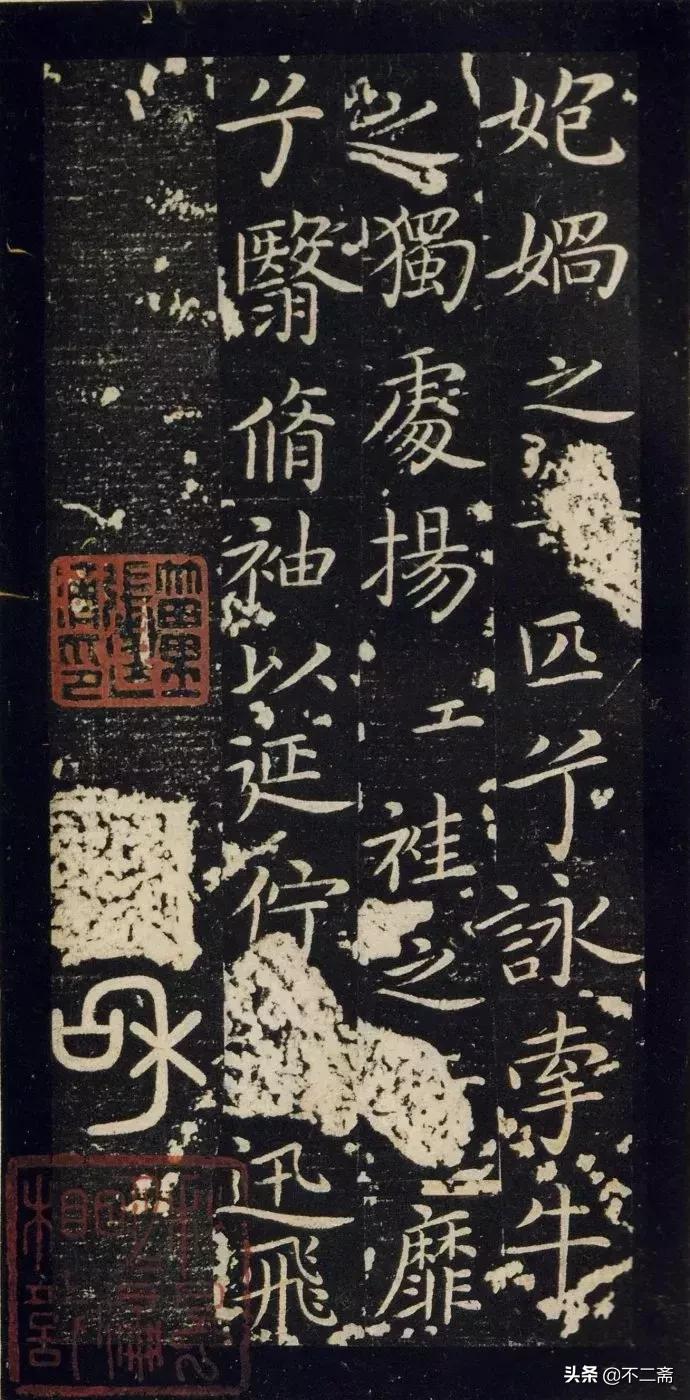 媧之匹兮詠牽牛
之獨處揚袿之靡
兮翳脩袖以延佇迅飛
头条 @不二斋